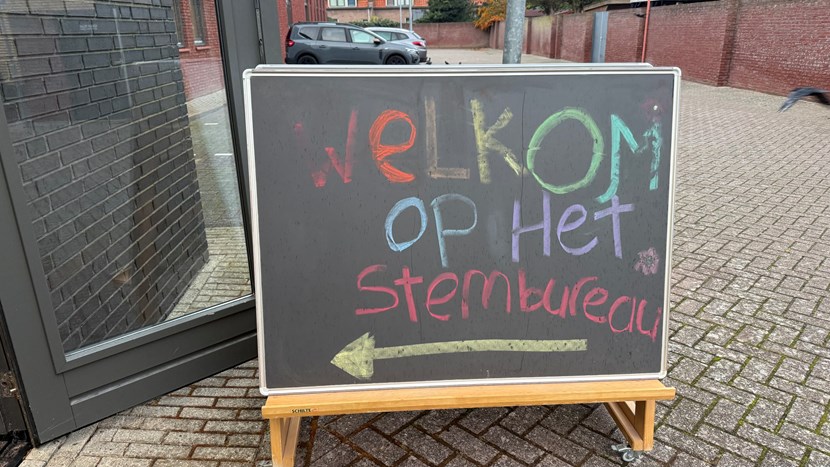 WELKOM
OP Het
Stembureau
SCHILTE